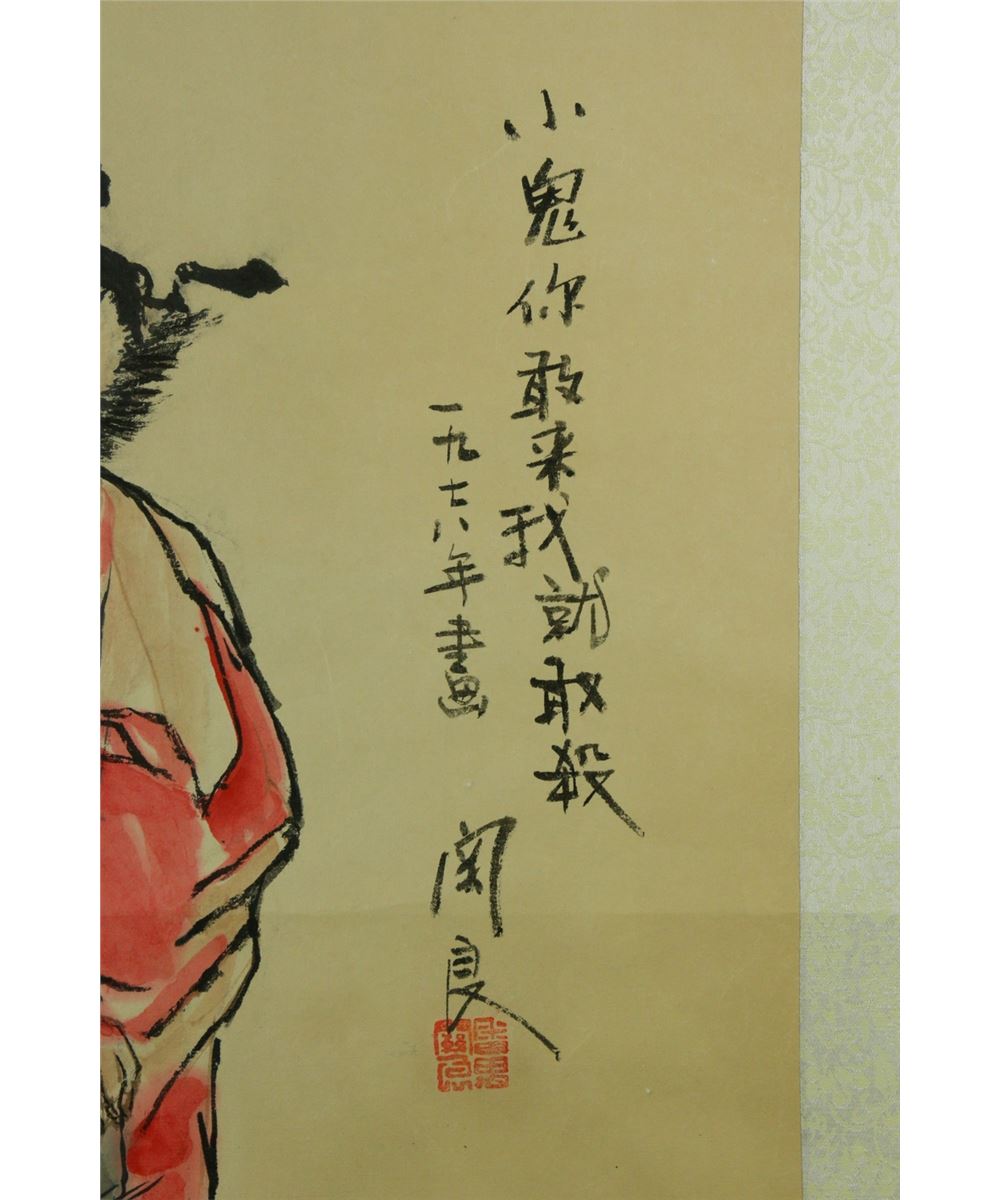 小鬼你敢来我就敢殺
一九七八年畫
関良